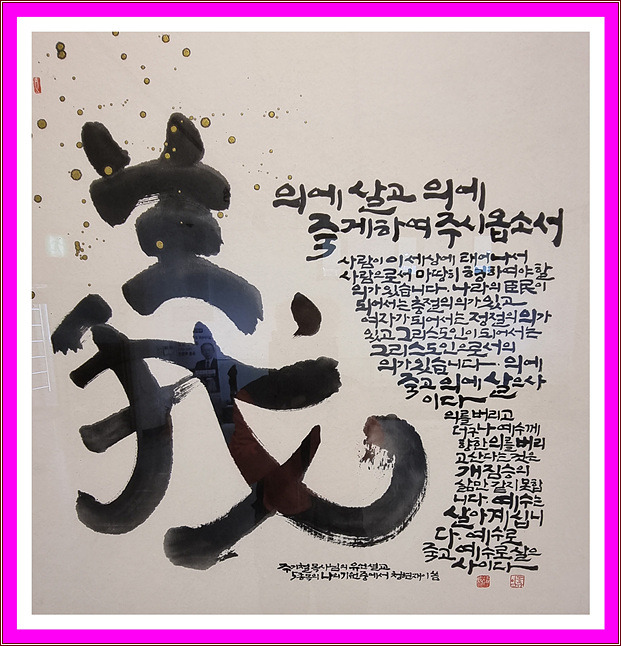 義
의에 살고 의에
죽게하여 주시옵소서
사람이 이 세상에 태어나서
사람으로서 마땅히 행하여야 할
의가 있습니다. 나라의 臣民이
되어서는 충절의 의가 있고
여자가 되어서는 정절의 의가
있고 그리스도인이 되어서는
그리스도인으로서의
의가 있습니다. 의에
죽고 의에 살으사
이다
의를 버리고
더구나 예수께
향한 의를 버리
고 산다는 것은
개 짐승의
삶만 같지 못합
니다. 예수는
살아계십니
다. 예수로
죽고 예수로 살으
사이다
주기철 목사님의 유언설교
오종목의 나의 기원 중에서